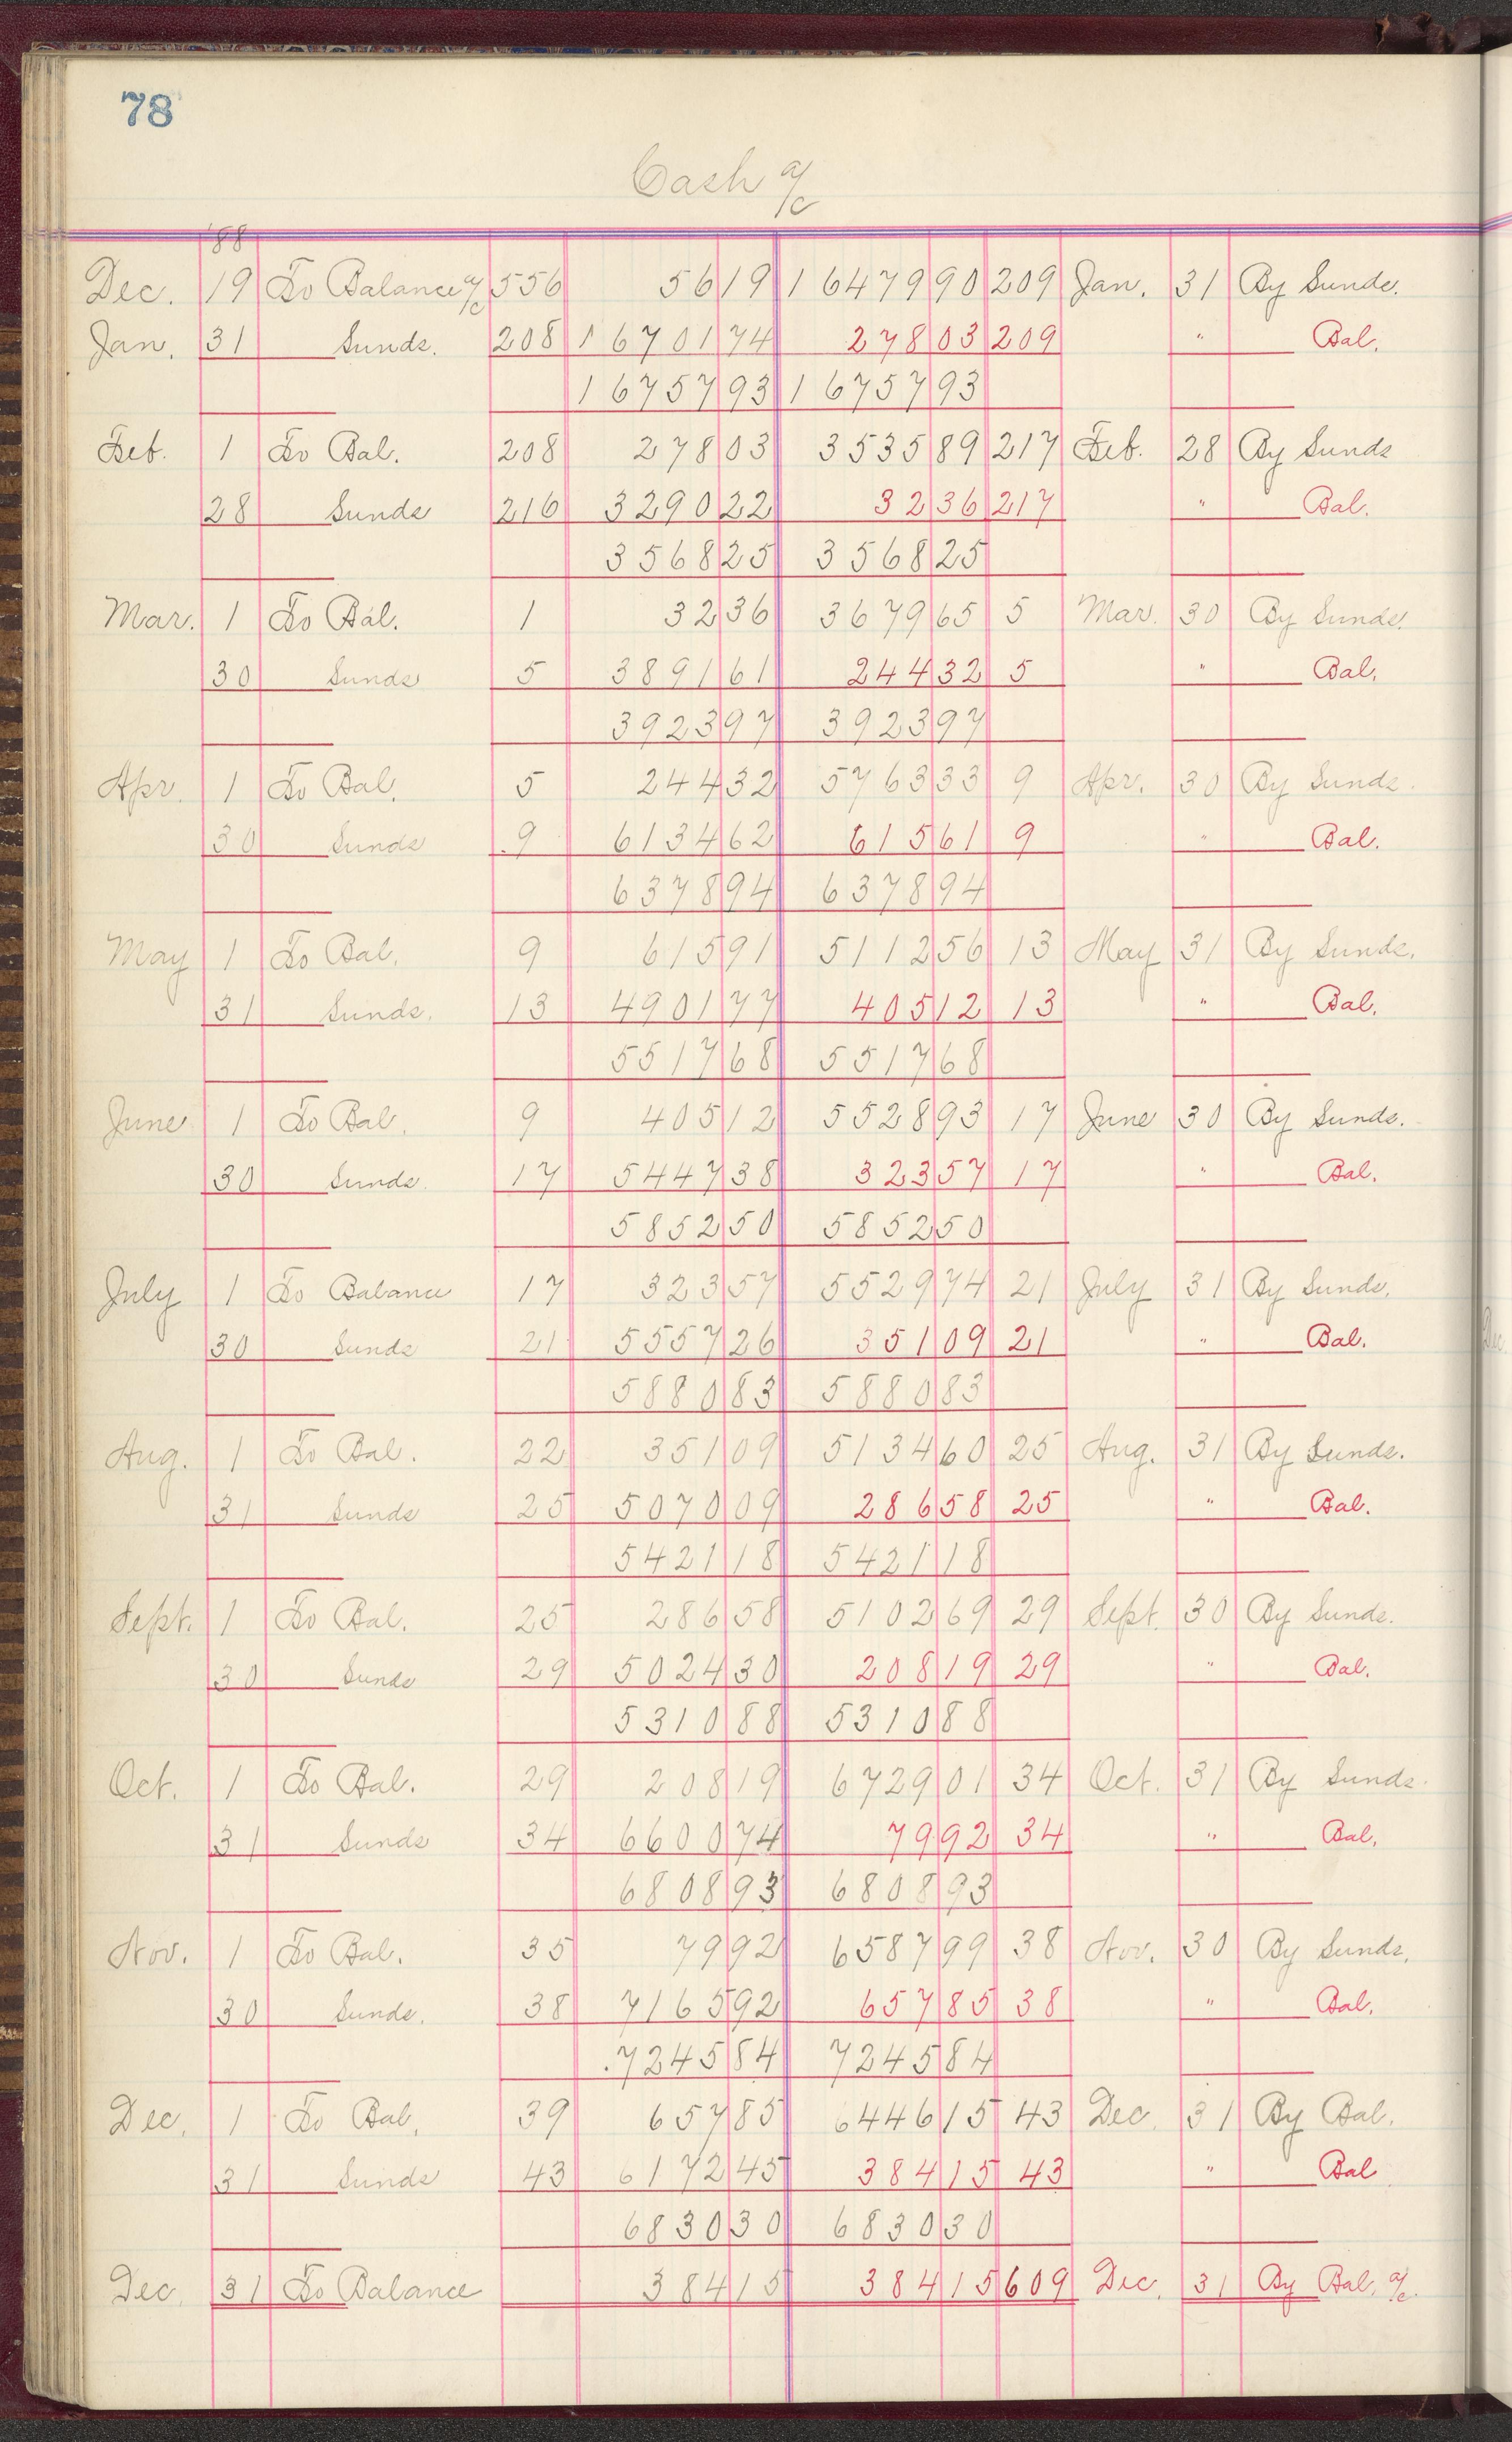 78
Cash a/c
'88
Dec. 19 To Balance a/c 556 56 19 16479 90 209 Jan. 31 By Sunds.
Jan. 31 Sunds. 208 16701 74 278 03 209 " Bal.
16757 93 16757 93
Feb. 1 To Bal. 208 278 03 3535 89 217 Feb. 28 By Sunds
28 Sunds 216 3290 22 32 36 217 " Bal.
3568 25 3568 25
Mar. 1 To Bal. 1 32 36 3679 65 5 Mar. 30 By Sunds.
30 Sunds 5 3891 61 244 32 5 " Bal.
3923 97 3923 97
Apr. 1 To Bal. 5 244 32 5763 33 9 Apr. 30 By Sunds.
30 Sunds 9 6134 62 615 61 9 " Bal.
6378 94 6378 94
May 1 To Bal. 9 615 91 5112 56 13 May 31 By Sunds.
31 Sunds. 13 4901 77 405 12 13 " Bal.
5517 68 5517 68
June 1 To Bal. 9 405 12 5528 93 17 June 30 By Sunds.
30 Sunds. 17 5447 38 323 57 17 " Bal.
5852 50 5852 50
July 1 To Balance 17 323 57 5529 74 21 July 31 By Sunds.
30 Sunds 21 5557 26 351 09 21 " Bal.
5880 83 5880 83
Aug. 1 To Bal. 22 351 09 5134 60 25 Aug. 31 By Sunds.
31 Sunds 25 5070 09 286 58 25 " Bal.
5421 18 5421 18
Sept. 1 To Bal. 25 286 58 5102 69 29 Sept. 30 By Sunds.
30 Sunds 29 5024 30 208 19 29 " Bal.
5310 88 5310 88
Oct. 1 To Bal. 29 208 19 6729 01 34 Oct. 31 By Sunds.
31 Sunds 34 6600 74 79 92 34 " Bal.
6808 93 6808 93
Nov. 1 To Bal. 35 79 92 6587 99 38 Nov. 30 By Sunds.
30 Sunds. 38 7165 92 657 85 38 " Bal.
7245 84 7245 84
Dec. 1 To Bal. 39 657 85 6446 15 43 Dec. 31 By Bal.
31 Sunds 43 6172 45 384 15 43 " Bal
6830 30 6830 30
Dec. 31 To Balance 384 15 384 15 609 Dec. 31 By Bal. a/c.